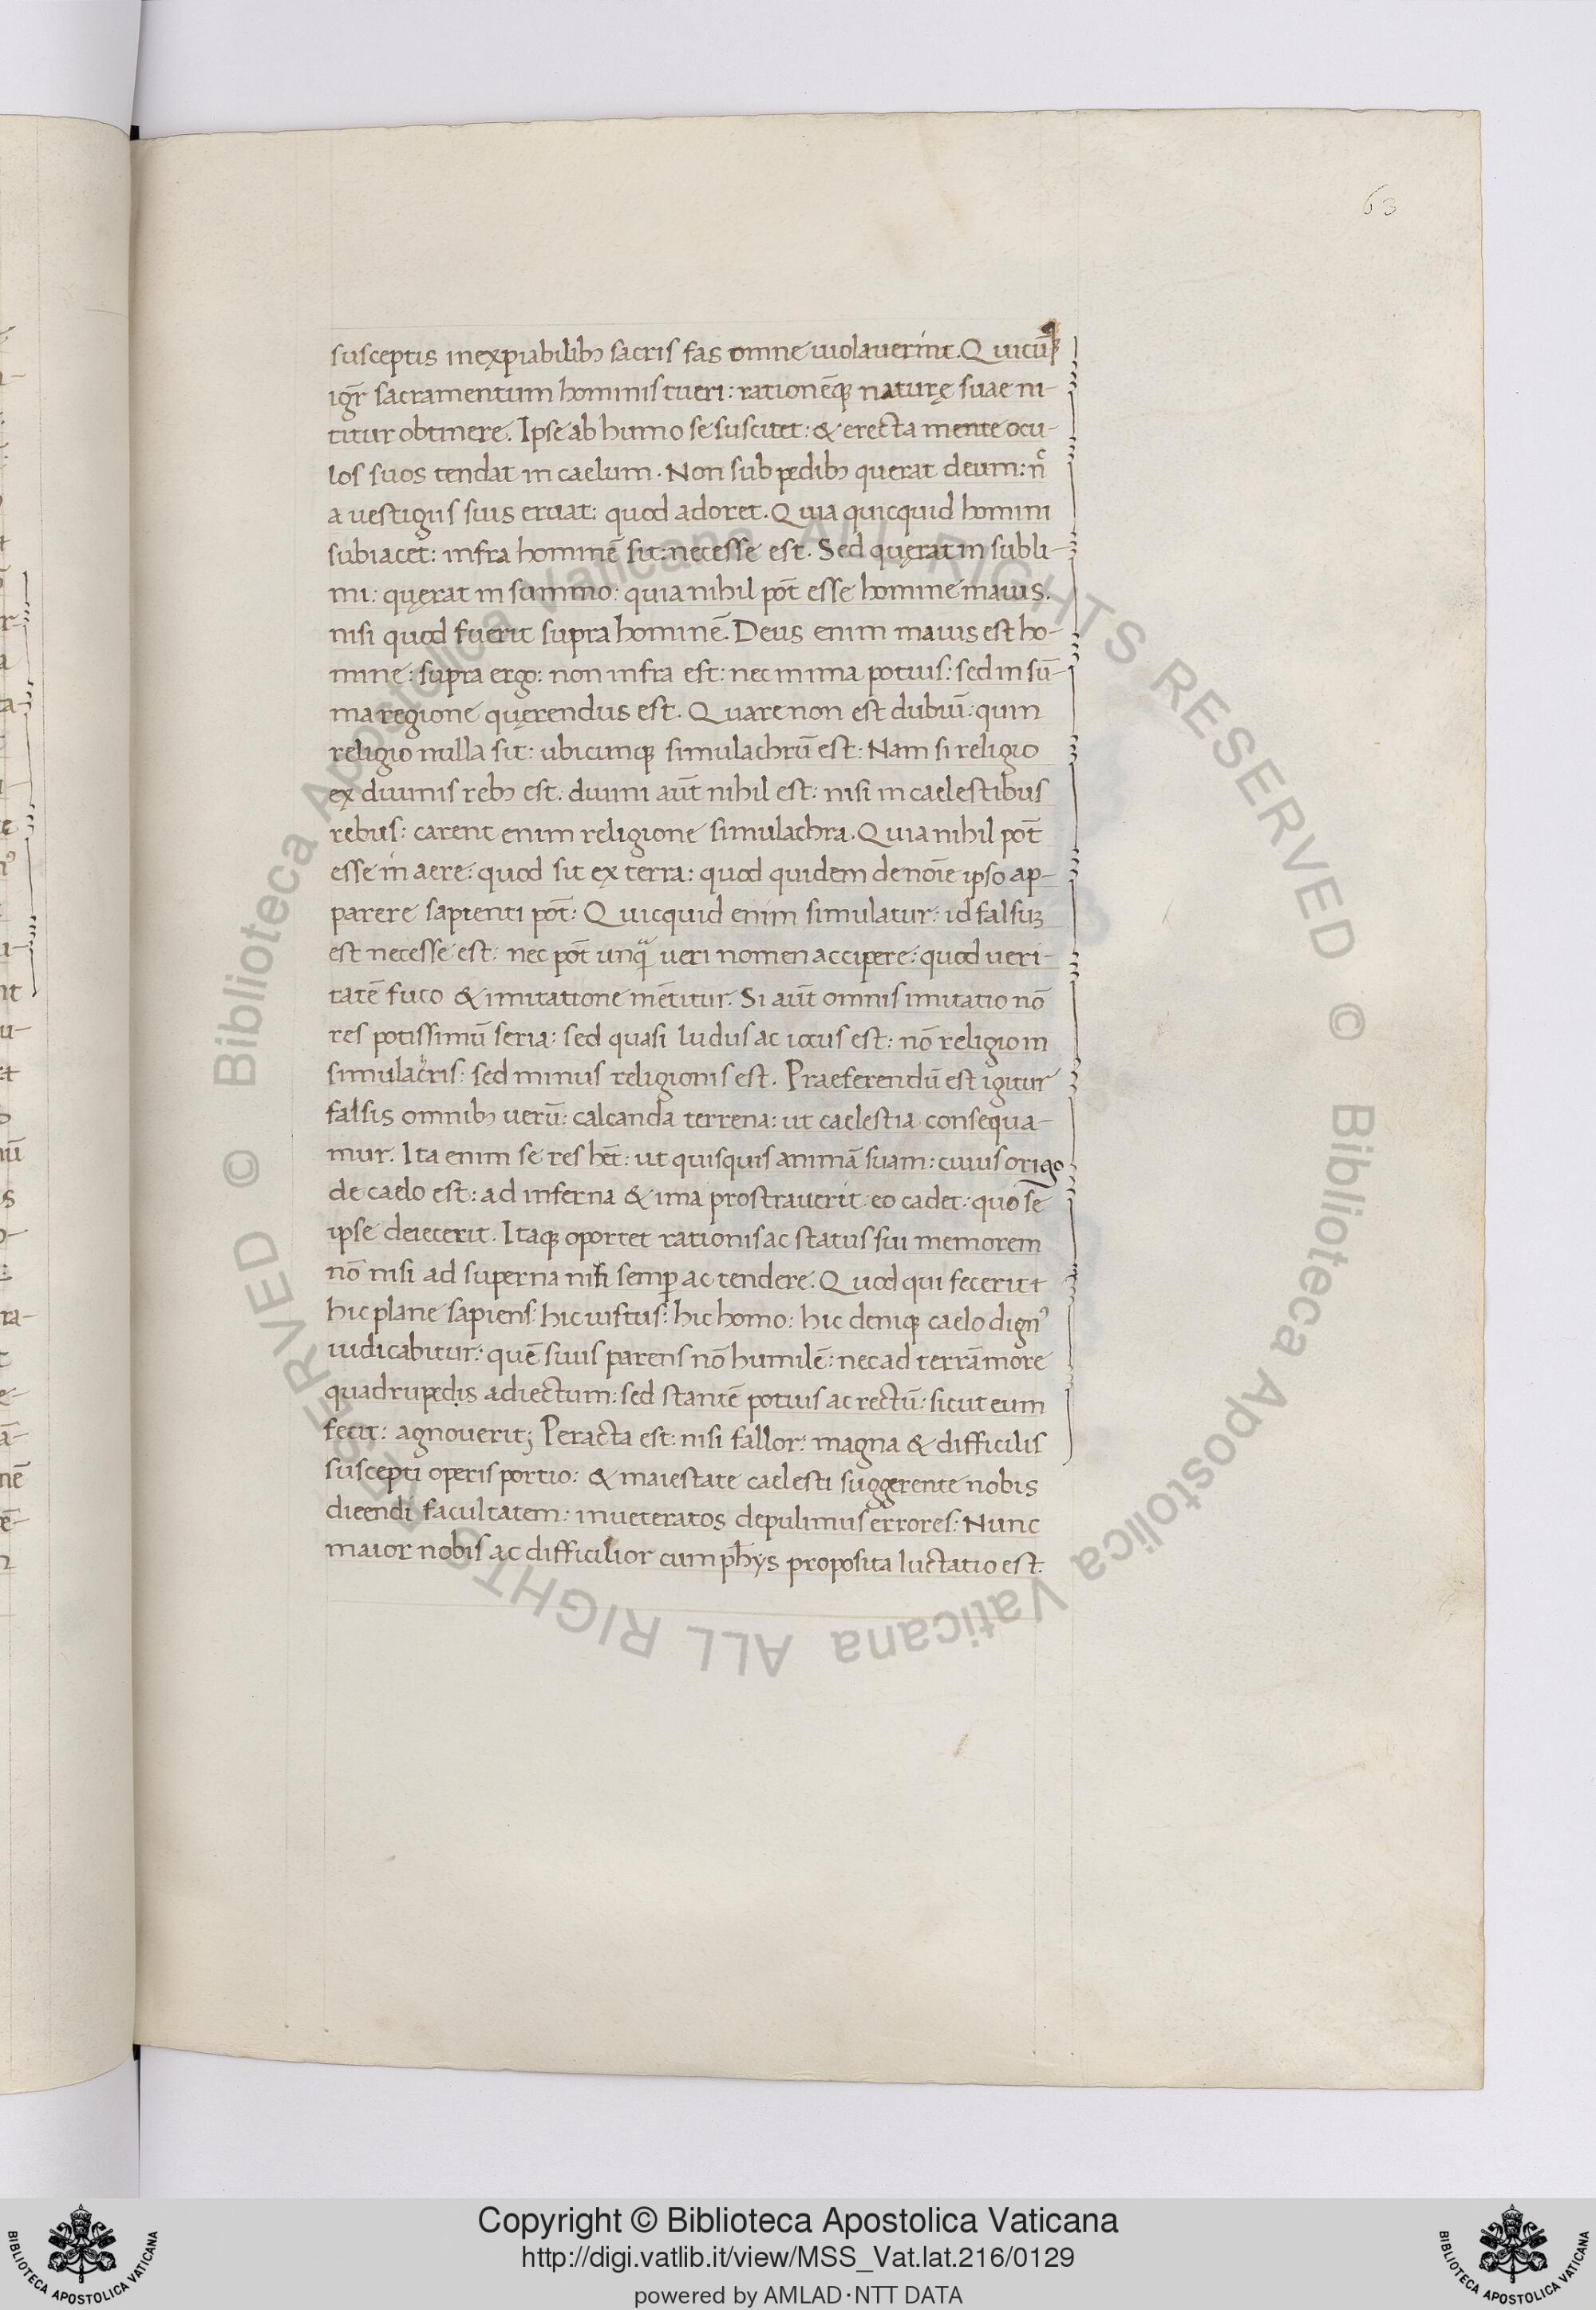 63
susceptis inexpiabilibꝫ sacris fas omne uiolauerint. Quicūqꝫ
igr̄ sacramentum hominis tueri: rationēqꝫ naturę suae ni-
titur obtinere. Ipse ab humo se suscitet: & erecta mente ocu-
los suos tendat in caelum. Non sub pedibꝫ querat deum: n̄c
a uestigiis suis eruat: quod adoret. Quia quicquid homini
subiacet: infra hominē sit: necesse est. Sed quęrat in subli-
mi: quęrat in summo: quia nihil pōt esse homine maius.
nisi quod fuerit supra hominē. Deus enim maius est ho-
mine: supra ergo: non infra est: nec in ima potius: sed in sū-
ma regione quęrendus est. Quare non est dubiū: quin
religio nulla sit: ubicunqꝫ simulachrū est: Nam si religio
ex diuinis rebꝫ est. diuini aūt nihil est: nisi in caelestibus
rebus: carent enim religione simulachra. Quia nihil pōt
esse in aere: quod sit ex terra: quod quidem de noīe ipso ap-
parere sapienti pōt: Quicquid enim simulatur: id falsuꝫ
est necesse est: nec pōt unq̄ ueri nomen accipere: quod ueri-
tatē fuco & imitatione mētitur. Si aūt omnis imitatio nō
res potissimū seria: sed quasi ludus ac iocus est: nō religio in
simulacris: sed minus religionis est. Praeferendū est igitur
falsis omnibꝫ uerū: calcanda terrena: ut caelestia consequa-
mur. Ita enim se res hēt: ut quisquis animā suam: cuius origo
de caelo est: ad inferna & ima prostrauerit: eo cadet: quo se
ipse deiecerit. Itaqꝫ oportet rationis ac status sui memorem
nō nisi ad superna niti semꝑ ac tendere. Quod qui fecerit
hic plane sapiens: hic iustus: hic homo: hic deniqꝫ caelo dignꝰ
iudicabitur: quē suus parens nō humilē: nec ad terrā more
quadrupedis adiectum: sed stantē potius ac rectū: sicut eum
fecit: agnouerit; Peracta est: nisi fallor: magna & difficilis
suscepti operis portio: & maiestate caelesti suggerente nobis
dicendi facultatem: inueteratos depulimus errores: Nunc
maior nobis ac difficilior cum ph̄ys proposita luctatio est.
© Biblioteca Apostolica Vaticana ALL RIGHTS RESERVED
© Biblioteca Apostolica Vaticana ALL RIGHTS RESERVED
Copyright © Biblioteca Apostolica Vaticana
http://digi.vatlib.it/view/MSS_Vat.lat.216/0129
powered by AMLAD·NTT DATA
BIBLIOTECA APOSTOLICA VATICANA
BIBLIOTECA APOSTOLICA VATICANA